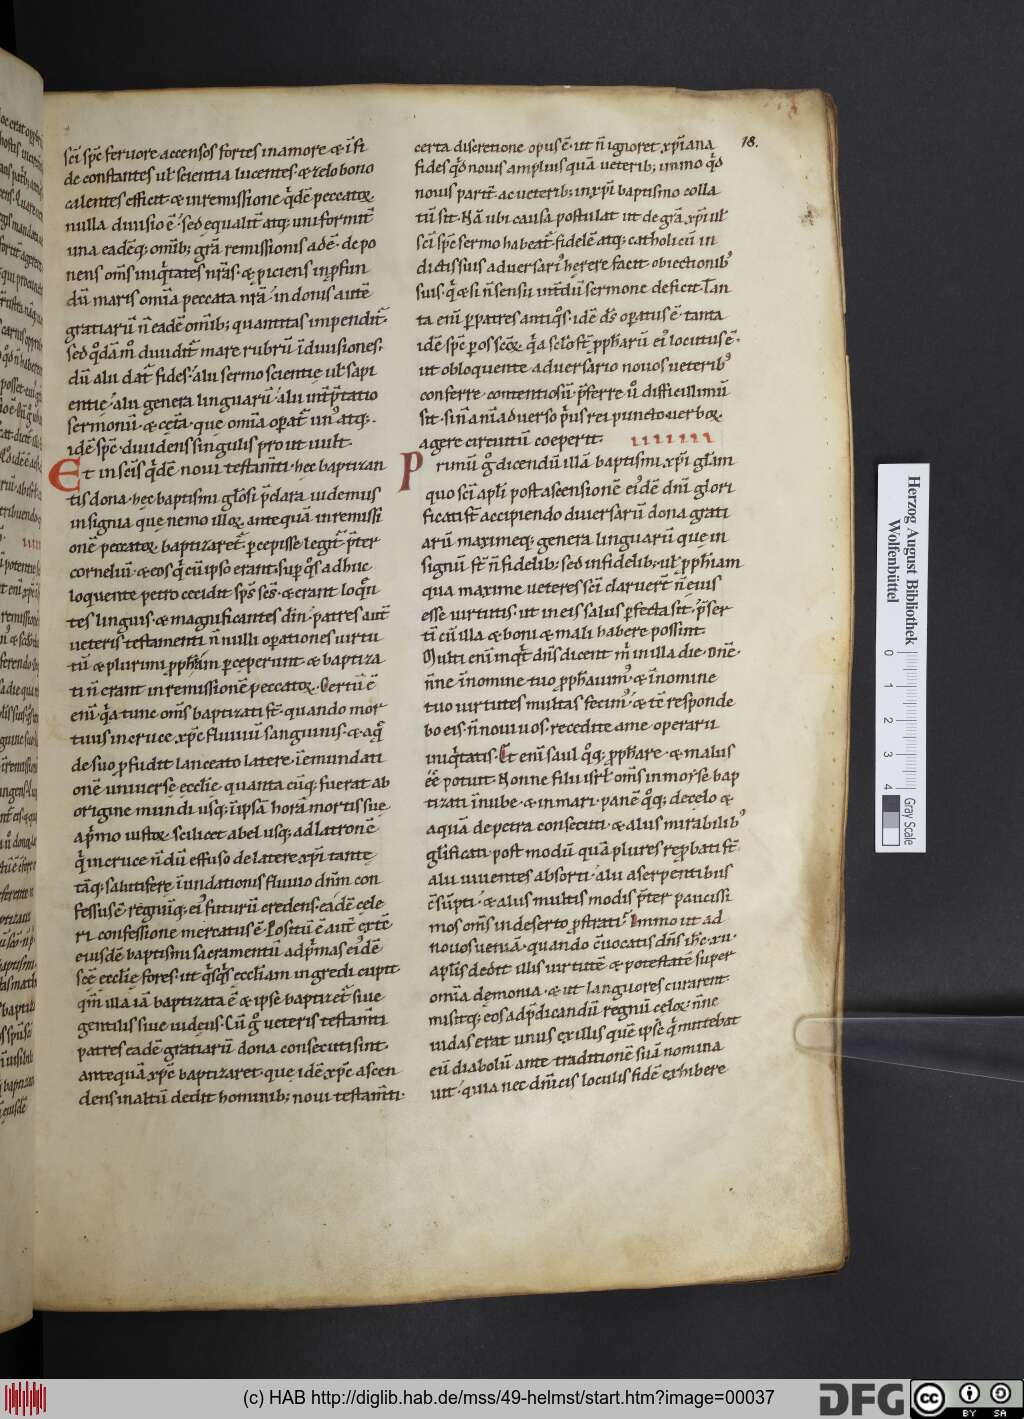 sc̄i sp̄c feruore accensos fortes in amore & ī fi
de constantes ul̄ scientia lucentes · & zelo bono
calentes efficit · & in remissione q̇dē peccatoꝝ
nulla diuisio ē · sed equalit̄ atq; uniformit̄
una eadēq; omīb; gr̄a remissionis adē · depo
nens om̄s iniq̇tates nr̄as · & piciens in ꝓfun
dū maris omīa peccata nr̄a · in donis autē
gratiarū n̄ eadē omīb; quantitas impendit̄ ·
sed q̊dā m̊ diuidit̄ mare rubrū ī diuisiones ·
dū alii dat̄ fides · alii sermo scientie ul̄ sapi
entie · alii genera linguarū · alii int̄p̄tatio
sermonū · & cet̄a · que omīa opat̄ un᷒ atq;
idē sp̄c · diuidens singulis prout uult ·
Et in sc̄is q̇dē noui testam̄ti · hec baptizan
tis dona · hec baptismi gl̄osi p̄clara uidemus
insignia que nemo illoꝝ antequā in remissi
onē peccatoꝝ baptizaret̄ · ꝑcepisse legit̄ · p̄ter
corneliū · & eos q̇ cū ipso erant · sup q̊s adhuc
loquente petro cecidit sp̄s sc̄s · & erant loq̄n
tes linguis · & magnificantes dn̄i · patres aut̄
ueteris testamenti n̄ nulli oꝑationes uirtu
tū & plurimi ꝓph̄iam ꝑceperunt · & baptiza
ti n̄ erant in remissionē peccatoꝝ · Vertū ē
enī · q̇a tunc om̄s baptizati st̄ · quando mor
tuus in cruce xp̄c fluuiū sanguinis · & aq̄
de suo ꝓfudit lanceato latere · ī emundati
onē uniuerse eccl̄ie · quanta cūq; fuerat ab
origine mundi usq; ī ipsā horā mortis sue
a ṗmo iustoꝝ · scilicet abel usq; ad latronē
q̇ in cruce n̄ dū effuso de latere xp̄i tante
tāq; salutifere ī undationis fluuio dn̄m con
fessus ē · regniq; ei᷒ futurū credens · eadē cele
ri confessione mercatus ē · Positū ē aut̄ extē
eiusdē baptismi sacramentū ad ṗmas ei᷒dē
sc̄e eccl̄ie fores · ut q̇sq̇s eccl̄iam ingredi cupit
qm̄ illa iā baptizata ē & ipse baptizet̄ siue
gentilis siue iudeus · Cū g̊ ueteris testam̄ti
patres eadē gratiarū dona consecuti sint ·
antequā xp̄c baptizaret · que idē xp̄c ascen
dens in altū dedit hominib; noui testam̄ti ·
18.
certa discretione opus ē · ut n̄ ignoret xp̄iana
fides q̊d nouis amplius quā ueterib; immo q̊d
nouis parit̄ ac ueterib; in xp̄i baptismo colla
tū sit · Nā ubi causa postulat ut de gr̄a xp̄i ul̄
sc̄i sp̄c sermo habeat̄ · fidelē atq; catholicū in
dictis suis aduersari᷒ herere facit obiectionib᷒
suis · q̇ & si n̄ sensū int̄dū sermone deficit · Tan
ta enī ꝑ patres antiq̊s · idē ds̄ opatus ē · tanta
idē sp̄c ꝑ os sc̄oꝝ q̇a sc̄lo st̄ ꝓph̄arū ei᷒ locutus ē ·
ut obloquente aduersario nouos ueterib᷒
conferre · contentiosū · p̄ferre u̇ difficillimū
sit · sin ānī aduerso ṗus rei puncto uerboꝝ
agere circuitū coeperit ·
Primū g̊ dicendū illā baptismi xp̄i gl̄am
quo sc̄i apl̄i post ascensionē ei᷒dē dn̄i glori
ficati st̄ accipiendo diuersarū dona grati
arū maximeq; genera linguarū que in
signū st̄ n̄ fidelib; sed infidelib; ul̄ ꝓph̄iam
qua maxime ueteres sc̄i claruer̄t n̄ eius
esse uirtutis · ut in eis salus ꝑfecta sit · p̄ser
tī cū illa & boni & mali habere possint
Multi enī inq̇t dn̄s dicent m̄ in illa die · Dn̄e ·
n̄ne ī nomine tuo ꝓphauim᷒ & ī nomine
tuo uirtutes multas fecim᷒ · & tc̄ responde
bo eis · n̄ noui uos · recedite a me · operarii
iniq̇tatis · Et enī saul q̊q; ꝓphare · & malus
eē potuit · Nonne filii isrl̄ om̄s in morse bap
tizati ī nube · & in mari · panē q̊q; de celo &
aquā de petra consecuti · & aliis mirabilib᷒
gl̄ificati postmodū quā plures reprobati st̄ ·
alii uiuentes absorti · alii a serpentibus
c̄sūpti · & aliis multis modis p̄ter paucissi
mos om̄s in deserto ꝓstrati · Immo ut ad
nouos ueniā · quando c̄uocatis dn̄s ih̄c · xii ·
apl̄is dedit illis uirtutē & potestatē super
omīa demonia · & ut languores curarent
misitq; eos ad p̄dicandū regnū celoꝝ · n̄ne
iudas erat unus ex illis quē ipse q̇ mittebat
eū diabolū ante traditionē suā nomina
uit · quia nec dn̄icis loculis fidē exhibere
Herzog August Bibliothek
Wolfenbüttel
0 1 2 3 4
Gray Scale
(c) HAB http://diglib.hab.de/mss/49-helmst/start.htm?image=00037
DFG
cc BY SA